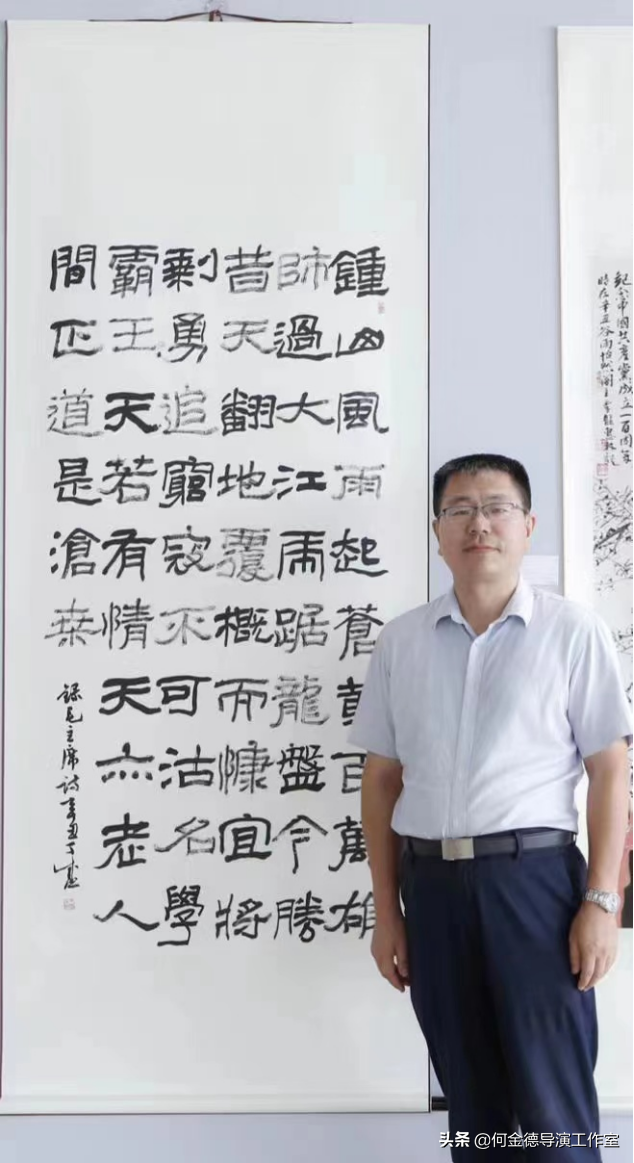 紀念中國共產黨成立一百周年
時在辛丑谷雨
鍾山風雨起蒼黃百萬雄
師過大江虎踞龍盤今勝
昔天翻地覆概而慷宜將
剩勇追窮寇不可沽名學
霸王天若有情天亦老人
間正道是滄桑
錄毛主席詩辛丑
头条 @何金德导演工作室